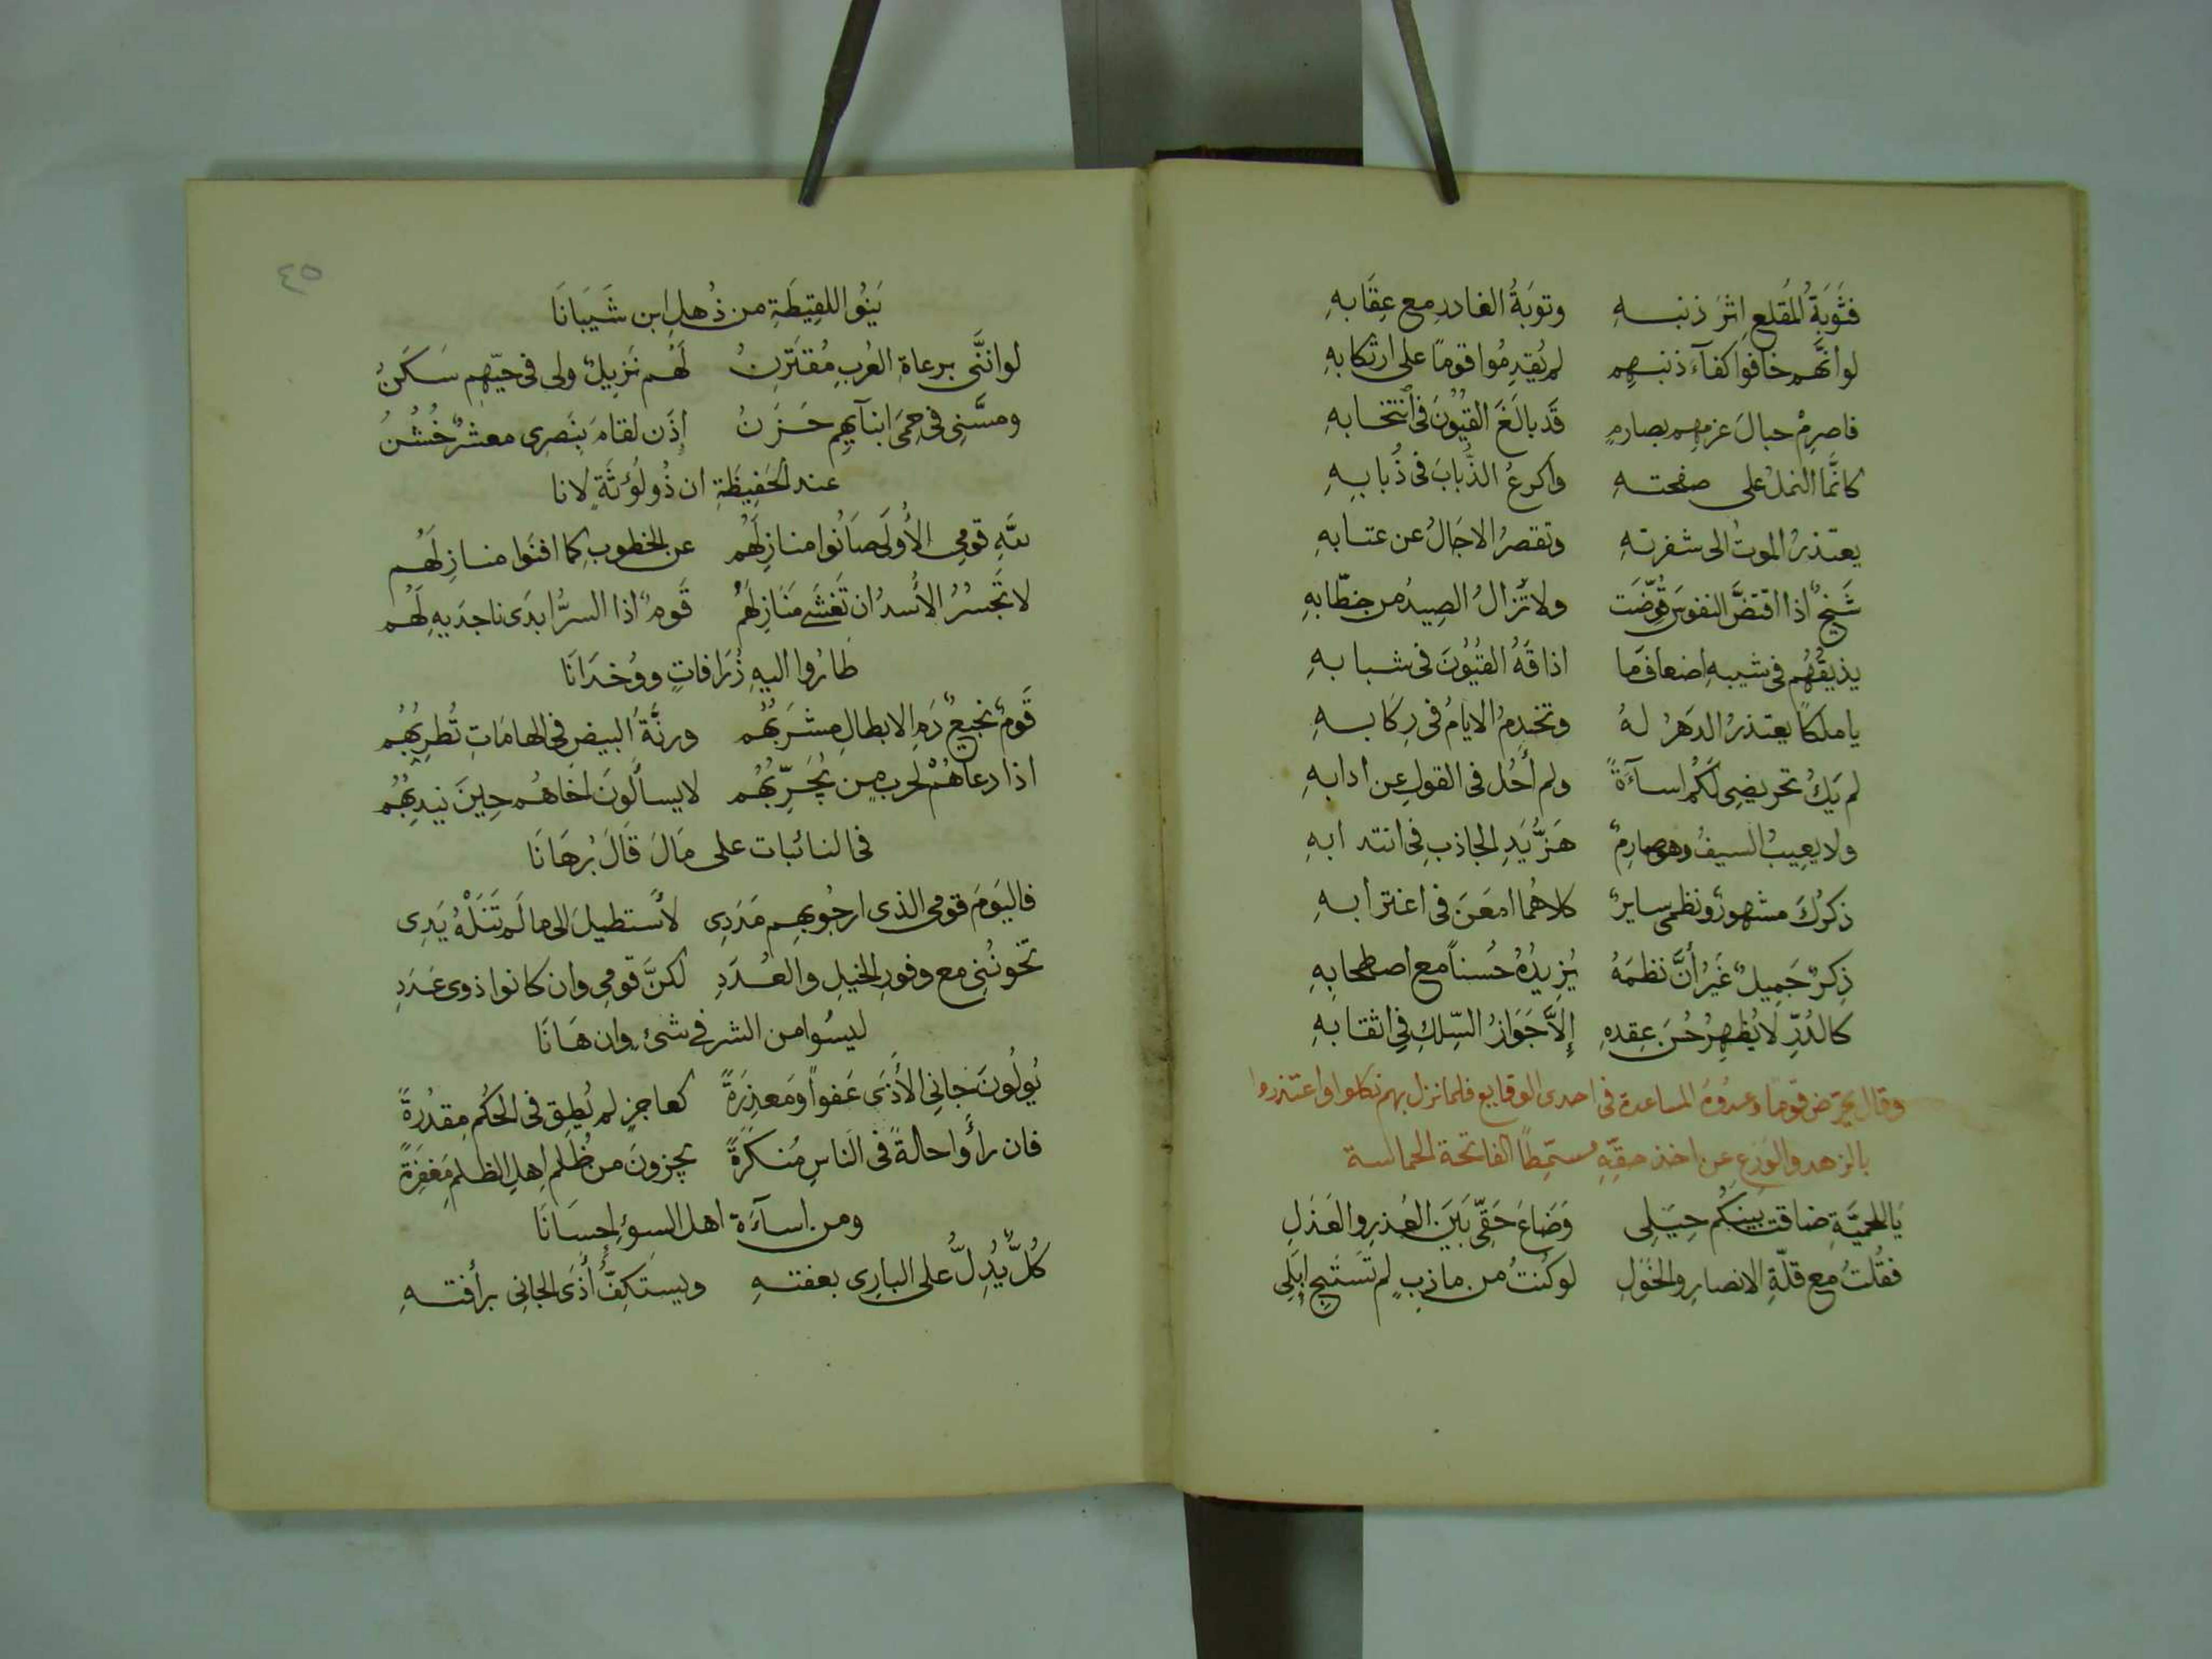 فتَوبَةُ المُقلعِ اِثرَ ذنبـــهِ وتوبَةُ الغادرِ مع عِقَابهِ
لو أنَّهم خافوا كفآءَ ذنبهِم لم يُقدِمُوا قوماً على ارتكابهِ
فاصرِمْ حبالَ عزمهِم بصارمٍ قَد بالَغَ القيُونَ فى انتخابهِ
كانَّما النملُ على صفحتـهِ واكرعُ الذُّبابَ فى ذُبابِهِ
يعتذرُ الموتُ الى شفرتهِ وتقصرُ الاجَالُ عن عتابهِ
شَيخٌ اذا اقتضَّ النفوسَ قُوّضَت ولا تزالُ الصِيدُ من خطّابهِ
يذيقُهُم فى شيبهِ اضعافَ مَا اذاقَهُ القيُونَ فى شبابهِ
يا ملكاً يعتذرُ الدَهرُ لهُ وتخدِمُ الايامُ فى رِكَابهِ
لم يَكُ تحريضِى لَكُم اساءَةً ولم أحُل فى القولِ عن ادابهِ
ولا يعِيبُ السيفَ وهو صارِمٌ هَزُّ يَدِ الجاذبِ فى انتدابهِ
ذكرُكَ مشهورٌ ونظمى سايرٌ كلاهُما امعَنَ فى اغترابهِ
ذِكرٌ جَمِيلٌ غَيرَ أنَّ نظمَهُ يُزيدُهُ حُسناً مع اصطحابِهِ
كالدُرِّ لَا يُظهِرُ حُسنَ عِقدهِ إلاَّ جَوَازُ السِّلكِ فى اثقابهِ
وقال يحرّض قوماً وعدُوهُ المساعدة فى احدى الوقايع فلما نزل بهم نكلوا واعتذروا
بالزهد والوَرَع عن اخذ حقِّهِ مسمّطاً الفاتحة الحماسة
يَا للحميَّةِ ضاقت بَينَكُم حِيَلِى وَضَاعَ حَقّى بَينَ العُذرِ والعَذَلِ
فقُلتُ مع قلّةِ الانصارِ والخَوَلِ لو كُنتُ من مازِبٍ لم تَستَبِح اِبِلِى
٤٥
بَنُوا اللقِيطَةِ من ذُهلِ ابن شَيَبَانَا
لو اننَّى برعاةِ العُربِ مُقتَرِنُ لَهُم نَزِيلٌ ولى فى حيّهِم سَكَنُ
ومسَّنِى فى حِمَى ابنآيِهِم حَزَنُ إذَن لقامَ بِنَصرِى معشرٌ خُشُنُ
عند الحَفِيظَةِ ان ذُو لُوثَةٍ لانا
للَّهِ قومِى الأُولَى صَانُوا منازِلَهُم عن الخطوبِ كما افنَوا منازِلَهُم
لا تَجسُرُ الأُسدُ ان تَغشَى مَنَازِلَهُم قَومٌ اذا السرُّ ابدَى ناجدَيهِ لَهُم
طَارُوا اليهِ زُرَافاتٍ ووُحدَانَا
قَومٌ نجيعُ دَمِ الابطالِ مشرَبُهُم ورنَّةُ البيضِ فى الهامَاتِ تُطرِبُهُم
اذا دعاهُمْ لحربٍ مِن يُجَرِّبُهُم لا يسألُونَ اخَاهُم حِينَ يندِبُهُم
فى النائبات على مَا لَ قَالَ بُرهَانَا
فاليَومَ قومى الذى ارجُو بهِم مَدَدِى لأستطيلَ الى ما لَم تَنَلْهُ يَدِى
تخونُنِى مع وفورِ الخيلِ والعُدَدِ لكنَّ قومِى وان كانوا ذوى عَدَدِ
ليسُوا من الشرِ فى شئٍ وان هَانَا
يُولُونَ جانِى الأَذَى عَفواً ومَعذِرَةً كعاجزٍ لم يُطِق فى الحُكمِ مِقدُرةً
فان رأَوا حالةً فى الناسِ مُنكَرَةً يجزونَ من ظُلمِ اهلِ الظلمِ مَغفِرَةً
ومن اسآءَة اهل السوءِ احِسَانَا
كُلٌّ يُدِلُّ على البارِى بعفتهِ ويستَكِفُّ أَذَى الجانِى برأفتهِ